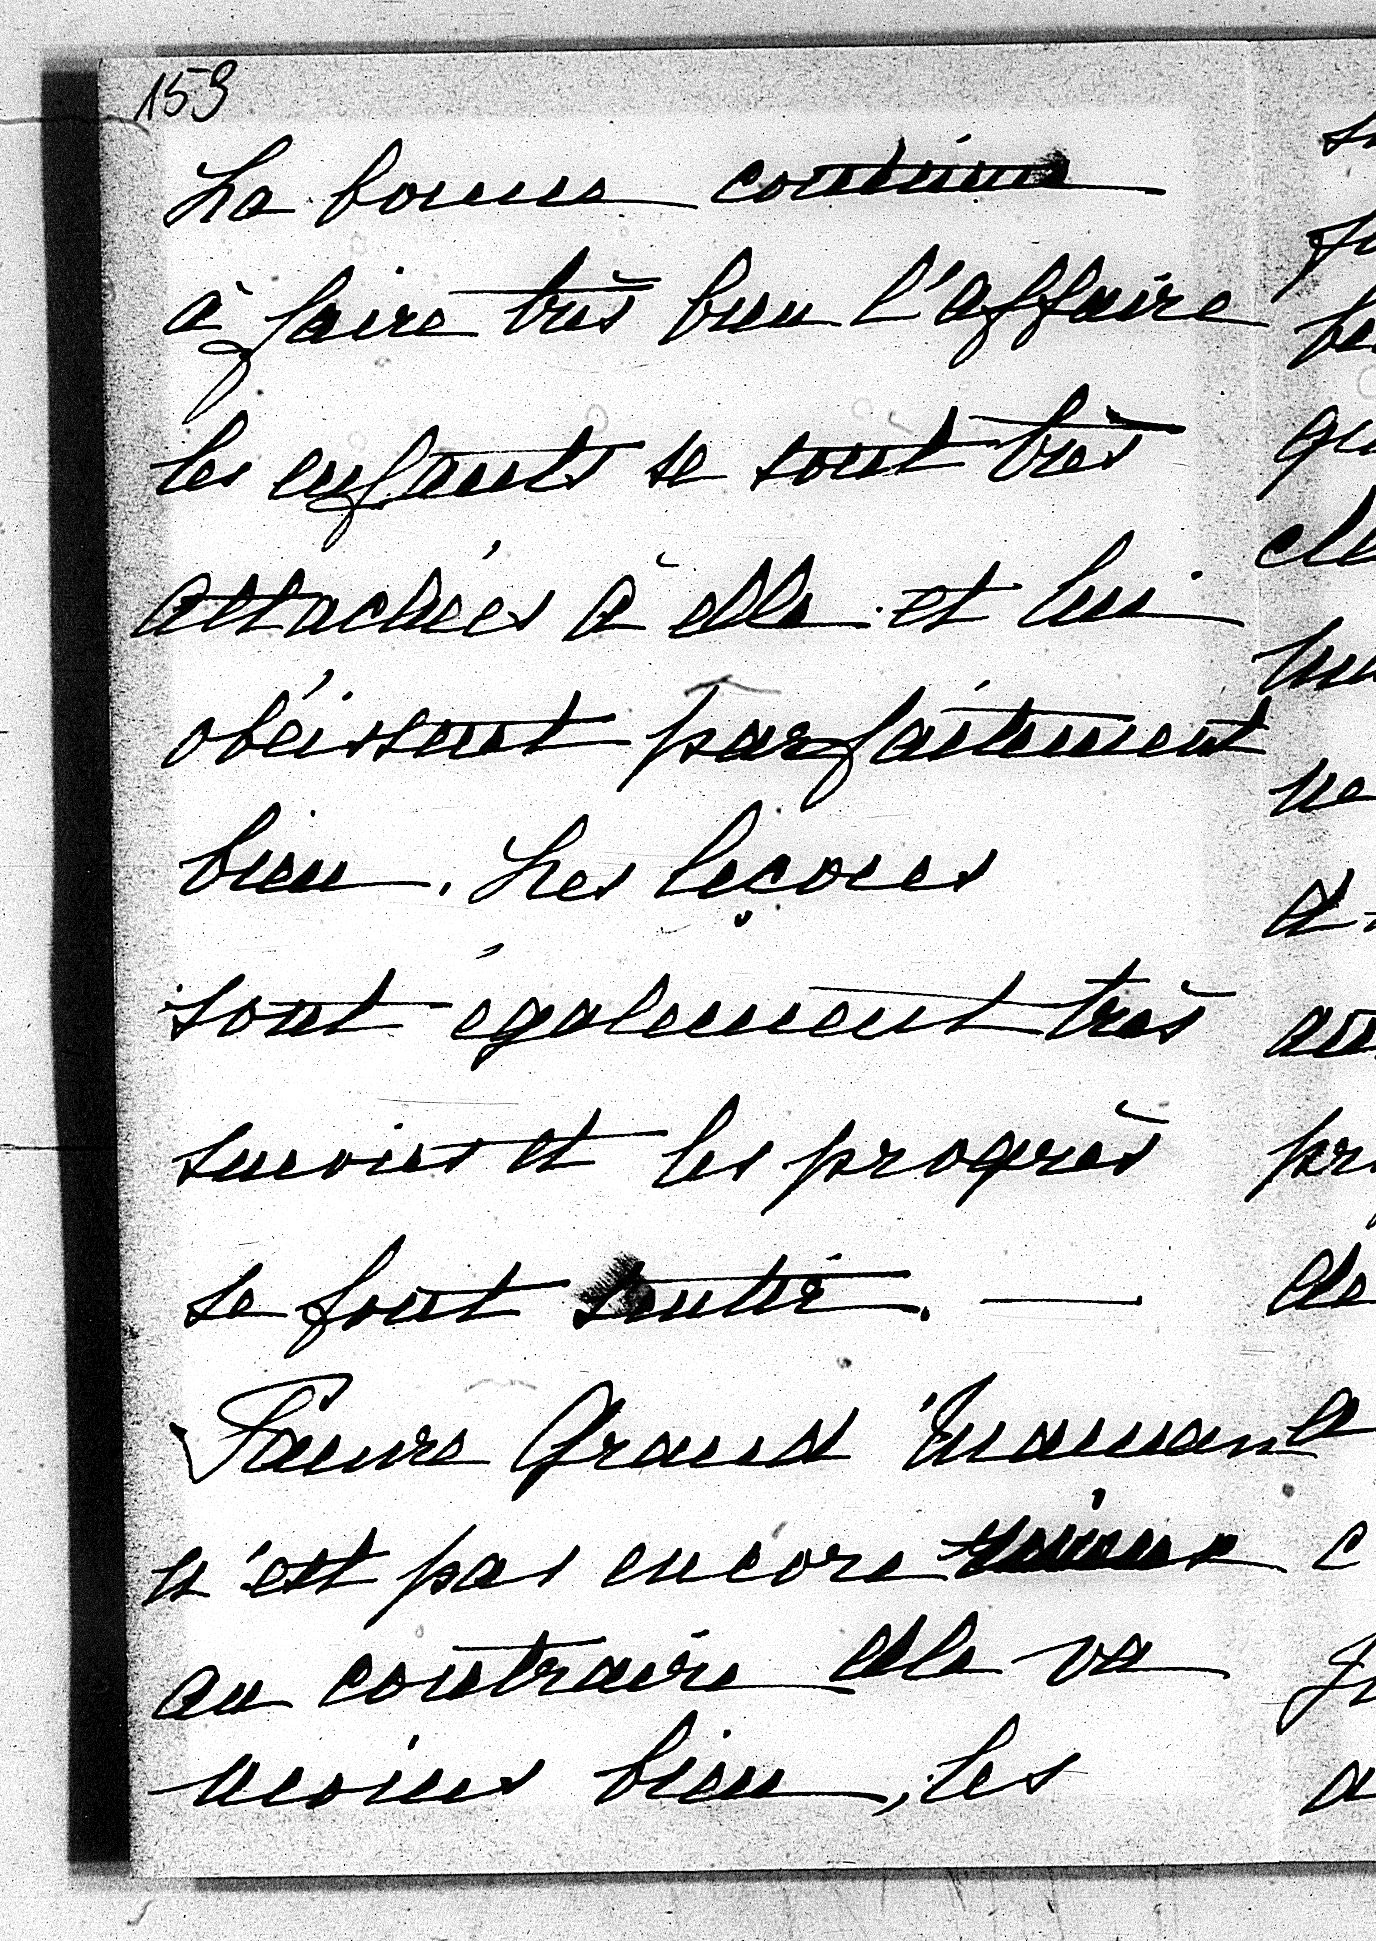 153
La bonne continue
à faire très bien l'affaire
les enfants se sont très
attachées à elle et lui
obéissent parfaitement
bien. Les leçons
sont également très
suivies et les progrès
se font sentir. —
Pauvre Grand'maman
n'est pas encore mieux
au contraire elle va
moins bien, les